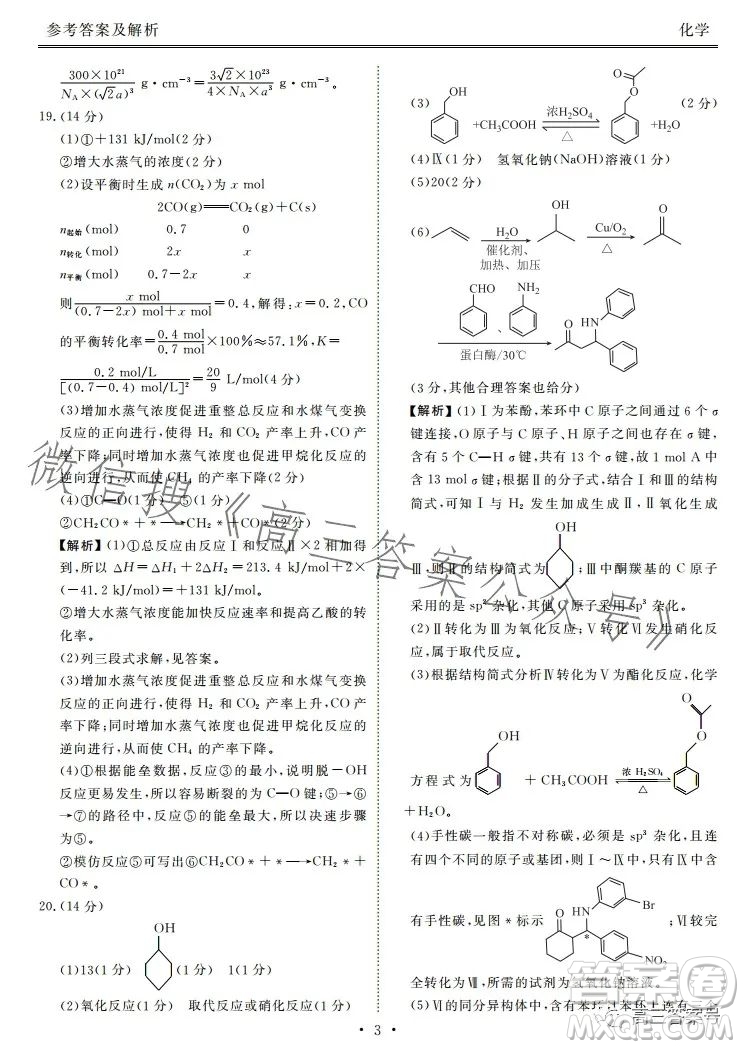 参考答案及解析
化学
300×10²¹/N_A×(√2a)³ g·cm⁻³=3√2×10²³/4×N_A×a³ g·cm⁻³。
19.(14分)
(1)①+131 kJ/mol(2分)
②增大水蒸气的浓度(2分)
(2)设平衡时生成n(CO₂)为x mol
2CO(g)══CO₂(g)+C(s)
n起始(mol) 0.7 0
n转化(mol) 2x x
n平衡(mol) 0.7−2x x
则x mol/(0.7−2x) mol+x mol=0.4,解得:x=0.2,CO
的平衡转化率=0.4 mol/0.7 mol×100%≈57.1%,K=
0.2 mol/L/[(0.7−0.4) mol/L]²=20/9 L/mol(4分)
(3)增加水蒸气浓度促进重整总反应和水煤气变换
反应的正向进行,使得H₂和CO₂产率上升,CO产
率下降;同时增加水蒸气浓度也促进甲烷化反应的
逆向进行,从而使CH₄的产率下降(2分)
(4)①C—O(1分) ⑤(1分)
②CH₂CO*+*→CH₂*+CO*(2分)
【解析】(1)①总反应由反应Ⅰ和反应Ⅱ×2相加得
到,所以ΔH=ΔH₁+2ΔH₂=213.4 kJ/mol+2×
(−41.2 kJ/mol)=+131 kJ/mol。
②增大水蒸气浓度能加快反应速率和提高乙酸的转
化率。
(2)列三段式求解,见答案。
(3)增加水蒸气浓度促进重整总反应和水煤气变换
反应的正向进行,使得H₂和CO₂产率上升,CO产
率下降;同时增加水蒸气浓度也促进甲烷化反应的
逆向进行,从而使CH₄的产率下降。
(4)①根据能垒数据,反应③的最小,说明脱—OH
反应更易发生,所以容易断裂的为C—O键;⑤→⑥
→⑦的路径中,反应⑤的能垒最大,所以决速步骤
为⑤。
②模仿反应⑤可写出CH₂CO*+*→CH₂*+
CO*。
20.(14分)
OH
(1)13(1分) (1分) 1(1分)
(2)氧化反应(1分) 取代反应或硝化反应(1分)
(3) OH +CH₃COOH 浓H₂SO₄ △ O O +H₂O (2分)
(4)Ⅸ(1分) 氢氧化钠(NaOH)溶液(1分)
(5)20(2分)
(6) H₂O 催化剂、加热、加压 OH Cu/O₂ △ O
CHO NH₂ 、 蛋白酶/30℃ O HN
(3分,其他合理答案也给分)
【解析】(1)Ⅰ为苯酚,苯环中C原子之间通过6个σ
键连接,O原子与C原子、H原子之间也含有σ键,
含有5个C—H σ键,共有13个σ键,故1 mol A中
含13 mol σ键;根据Ⅱ的分子式,结合Ⅰ和Ⅲ的结构
简式,可知Ⅰ与H₂发生加成生成Ⅱ,Ⅱ氧化生成
OH
Ⅲ,则Ⅱ的结构简式为 ;Ⅲ中酮羰基的C原子
采用的是sp²杂化,其他C原子采用sp³杂化。
(2)Ⅱ转化为Ⅲ为氧化反应;Ⅴ转化Ⅵ发生硝化反
应,属于取代反应。
(3)根据结构简式分析Ⅳ转化为Ⅴ为酯化反应,化学
方程式为 OH +CH₃COOH 浓H₂SO₄ △ O O
+H₂O。
(4)手性碳一般指不对称碳,必须是sp³杂化,且连
有四个不同的原子或基团,则Ⅰ～Ⅸ中,只有Ⅸ含
有手性碳,见如图*标示 O HN Br * NO₂ ;Ⅵ较完
全转化为Ⅶ,所需的试剂为氢氧化钠溶液。
(5)Ⅵ的同分异构体中,含有苯环且苯环上连有
·3·
微信搜《高三答案公众号》
答案圈
MXQE.COM
高三答案号